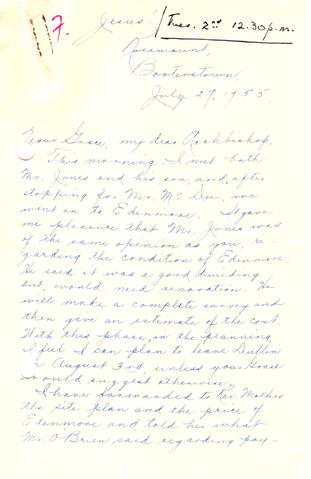 7.
Jesus. / Tues. 2nd 12.30 p.m.
Rosemount,
Booterstown,
July 27, 1955.
Your Grace, my dear Archbishop,
This morning, I met both
Mr. Jones and his son, and, after
stopping for Mr. McDee, we
went on to Edenmore. It gave
me pleasure that Mr. Jones was
of the same opinion as you, re-
garding the condition of Edenmore.
He said it was a good building
but, would need renovation. He
will make a complete survey and
then give an estimate of the cost.
With this phase, in the planning,
I feel I can plan to leave Dublin
on August 3rd, unless your Grace
would suggest otherwise.
I have forwarded to Rev. Mother
the site plan and the price of
Edenmore and told her what
Mr. O'Brien said regarding pay-